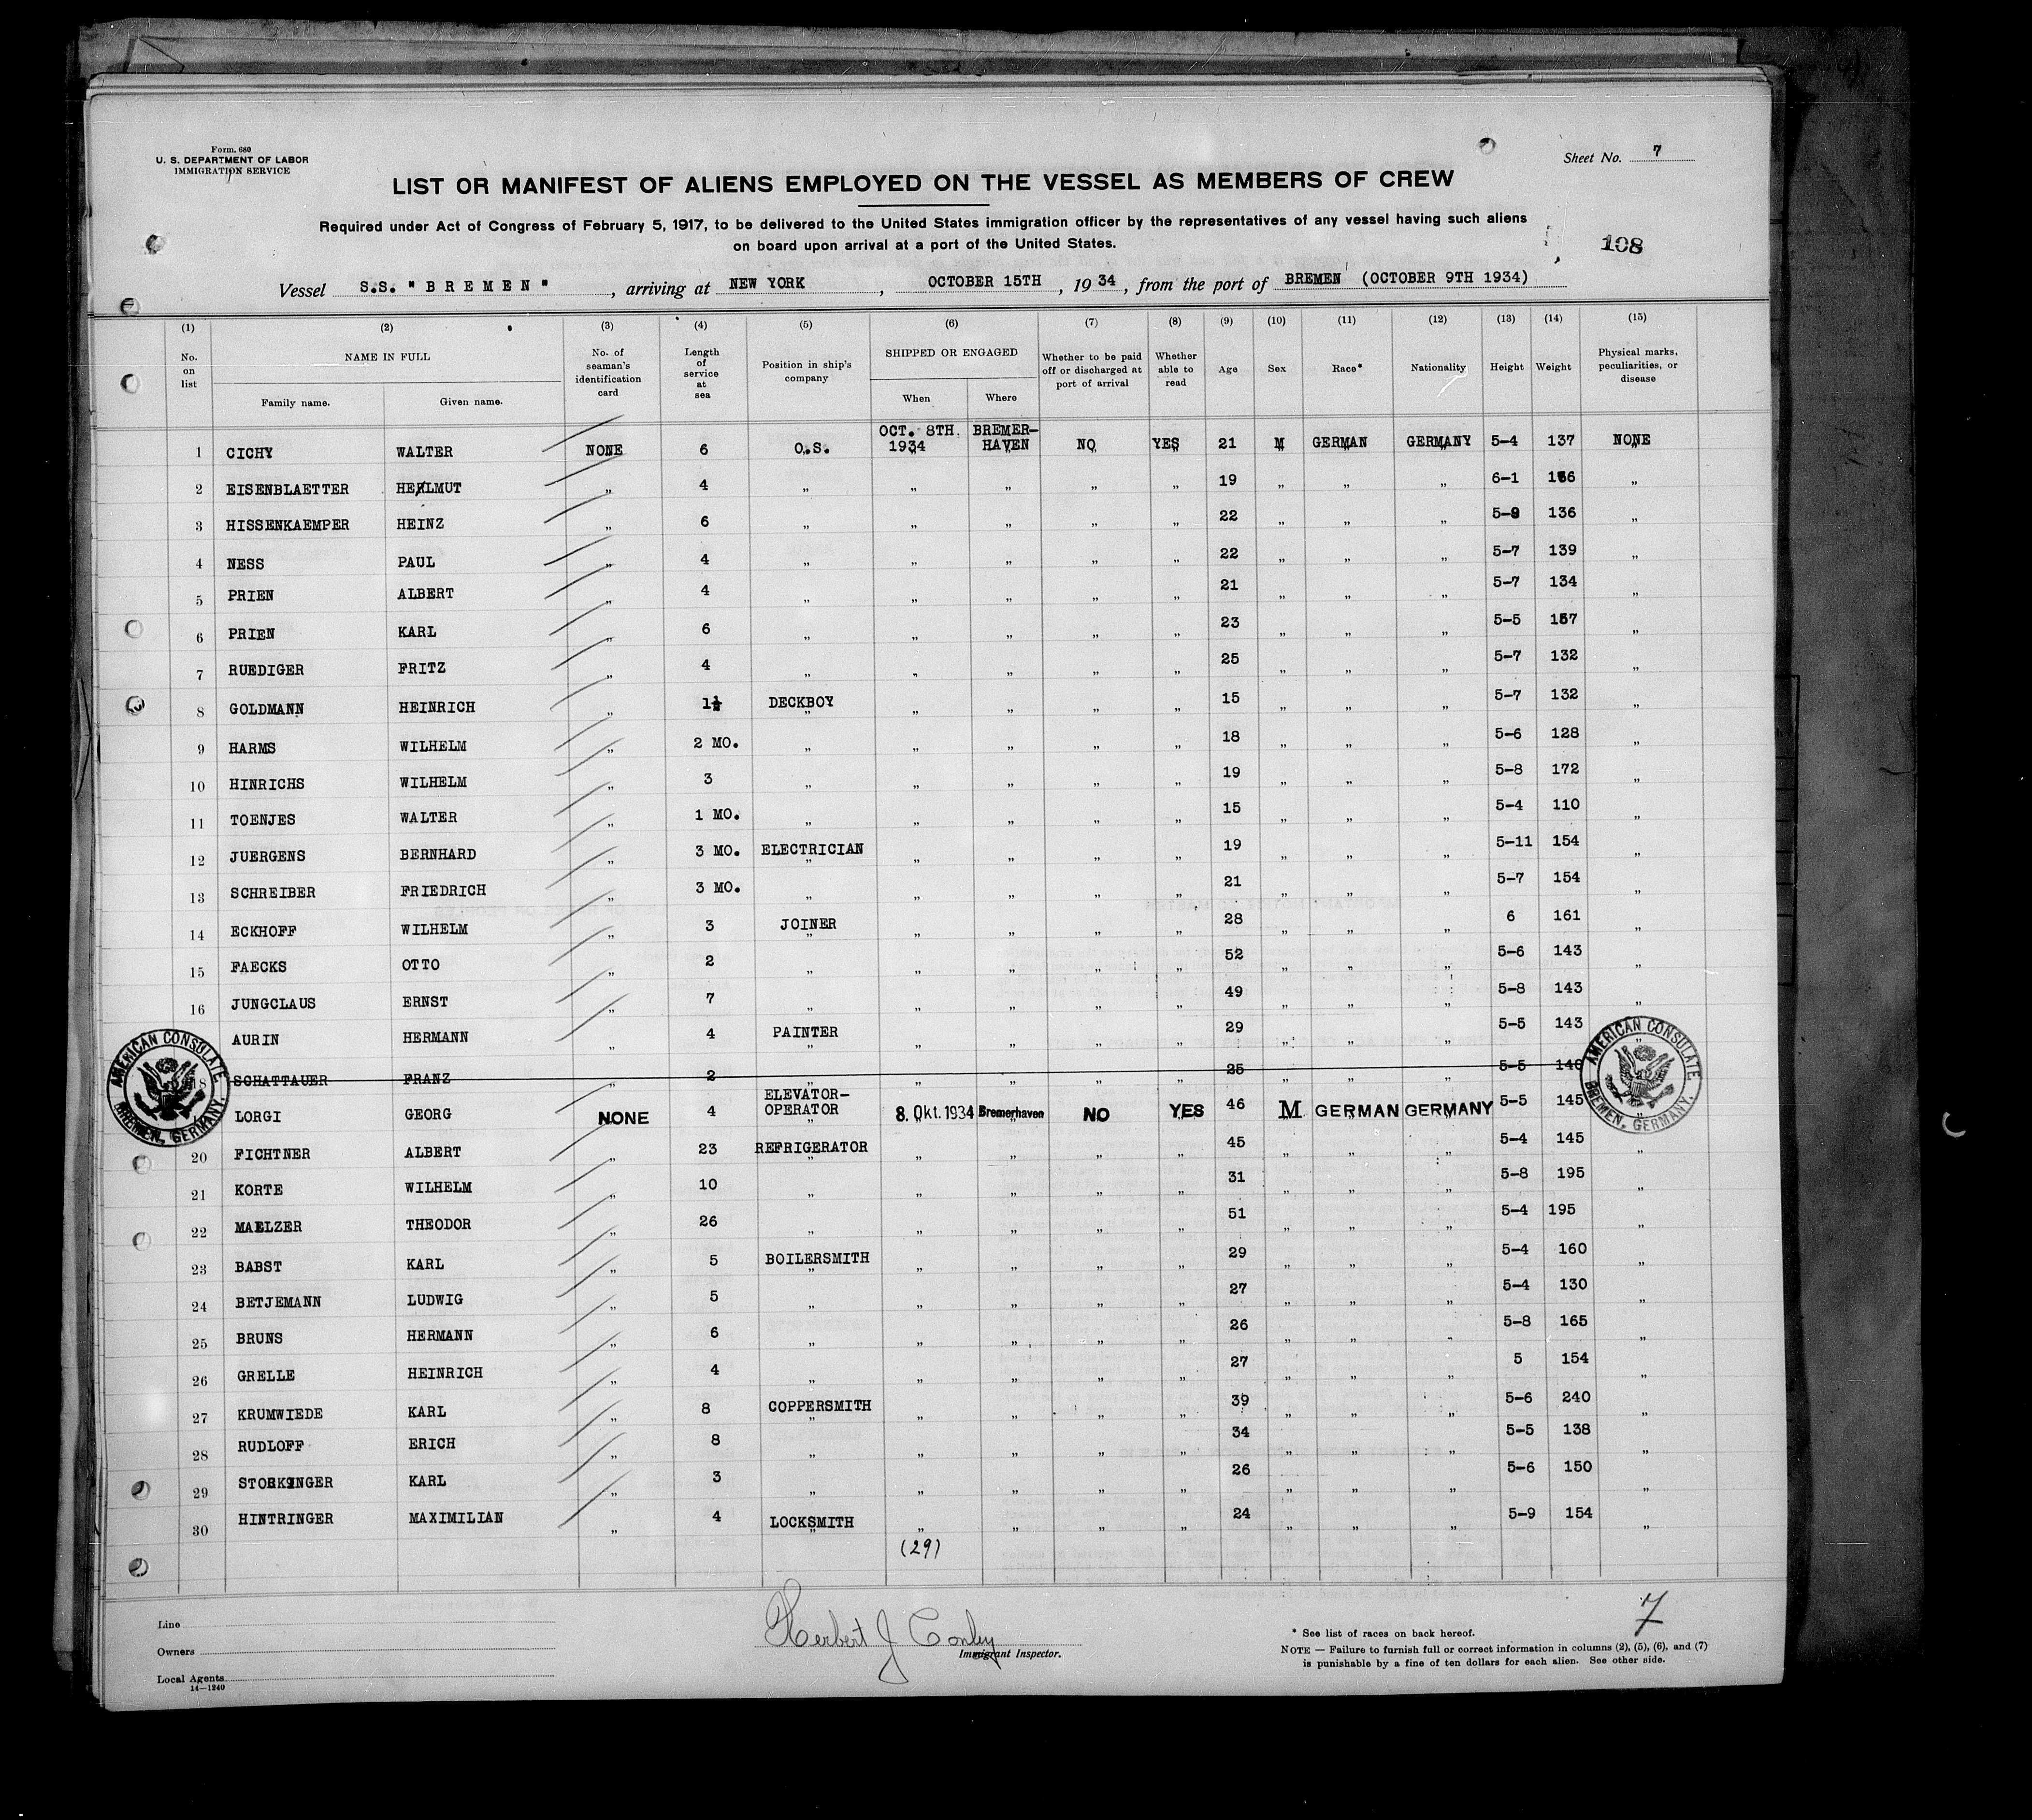 Form. 680
U. S. DEPARTMENT OF LABOR
IMMIGRATION SERVICE
Sheet No. 7
LIST OR MANIFEST OF ALIENS EMPLOYED ON THE VESSEL AS MEMBERS OF CREW
Required under Act of Congress of February 5, 1917, to be delivered to the United States immigration officer by the representatives of any vessel having such aliens
on board upon arrival at a port of the United States.
108
Vessel S.S. "BREMEN", arriving at NEW YORK, OCTOBER 15TH, 1934, from the port of BREMEN (OCTOBER 9TH 1934)
(1) (2) (3) (4) (5) (6) (7) (8) (9) (10) (11) (12) (13) (14) (15)
No. on list NAME IN FULL Family name. Given name. No. of seaman's identification card Length of service at sea Position in ship's company SHIPPED OR ENGAGED When Where Whether to be paid off or discharged at port of arrival Whether able to read Age Sex Race* Nationality Height Weight Physical marks, peculiarities, or disease
1 CICHY WALTER NONE 6 O.S. OCT. 8TH. 1934 BREMER-HAVEN NO YES 21 M GERMAN GERMANY 5-4 137 NONE
2 EISENBLAETTER HELMUT " 4 " " " " " 19 " " " 6-1 166 "
3 HISSENKAEMPER HEINZ " 6 " " " " " 22 " " " 5-9 136 "
4 NESS PAUL " 4 " " " " " 22 " " " 5-7 139 "
5 PRIEN ALBERT " 4 " " " " " 21 " " " 5-7 134 "
6 PRIEN KARL " 6 " " " " " 23 " " " 5-5 157 "
7 RUEDIGER FRITZ " 4 " " " " " 25 " " " 5-7 132 "
8 GOLDMANN HEINRICH " 1½ DECKBOY " " " " 15 " " " 5-7 132 "
9 HARMS WILHELM " 2 MO. " " " " " 18 " " " 5-6 128 "
10 HINRICHS WILHELM " 3 " " " " " 19 " " " 5-8 172 "
11 TOENJES WALTER " 1 MO. " " " " " 15 " " " 5-4 110 "
12 JUERGENS BERNHARD " 3 MO. ELECTRICIAN " " " " 19 " " " 5-11 154 "
13 SCHREIBER FRIEDRICH " 3 MO. " " " " " 21 " " " 5-7 154 "
14 ECKHOFF WILHELM " 3 JOINER " " " " 28 " " " 6 161 "
15 FAECKS OTTO " 2 " " " " " 52 " " " 5-6 143 "
16 JUNGCLAUS ERNST " 7 " " " " " 49 " " " 5-8 143 "
AURIN HERMANN " 4 PAINTER " " " " 29 " " " 5-5 143 "
8 SCHATTAUER FRANZ " 2 " " " " " 25 " " " 5-5 140 "
LORGI GEORG NONE 4 ELEVATOR-OPERATOR 8. Okt. 1934 Bremerhaven NO YES 46 M GERMAN GERMANY 5-5 145 "
20 FICHTNER ALBERT " 23 REFRIGERATOR " " " " 45 " " " 5-4 145 "
21 KORTE WILHELM " 10 " " " " " 31 " " " 5-8 195 "
22 MAELZER THEODOR " 26 " " " " " 51 " " " 5-4 195 "
23 BABST KARL " 5 BOILERSMITH " " " " 29 " " " 5-4 160 "
24 BETJEMANN LUDWIG " 5 " " " " " 27 " " " 5-4 130 "
25 BRUNS HERMANN " 6 " " " " " 26 " " " 5-8 165 "
26 GRELLE HEINRICH " 4 " " " " " 27 " " " 5 154 "
27 KRUMWIEDE KARL " 8 COPPERSMITH " " " " 39 " " " 5-6 240 "
28 RUDLOFF ERICH " 8 " " " " " 34 " " " 5-5 138 "
29 KARL " 3 " " " " " 26 " " " 5-6 150 "
30 HINTRINGER MAXIMILIAN " 4 LOCKSMITH " " " " 24 " " " 5-9 154 "
AMERICAN CONSULATE BREMEN, GERMANY.
AMERICAN CONSULATE BREMEN, GERMANY.
(29)
Line
Owners
Local Agents
14—1240
Herbert J Conley
Immigrant Inspector.
7
* See list of races on back hereof.
NOTE — Failure to furnish full or correct information in columns (2), (5), (6), and (7)
is punishable by a fine of ten dollars for each alien. See other side.